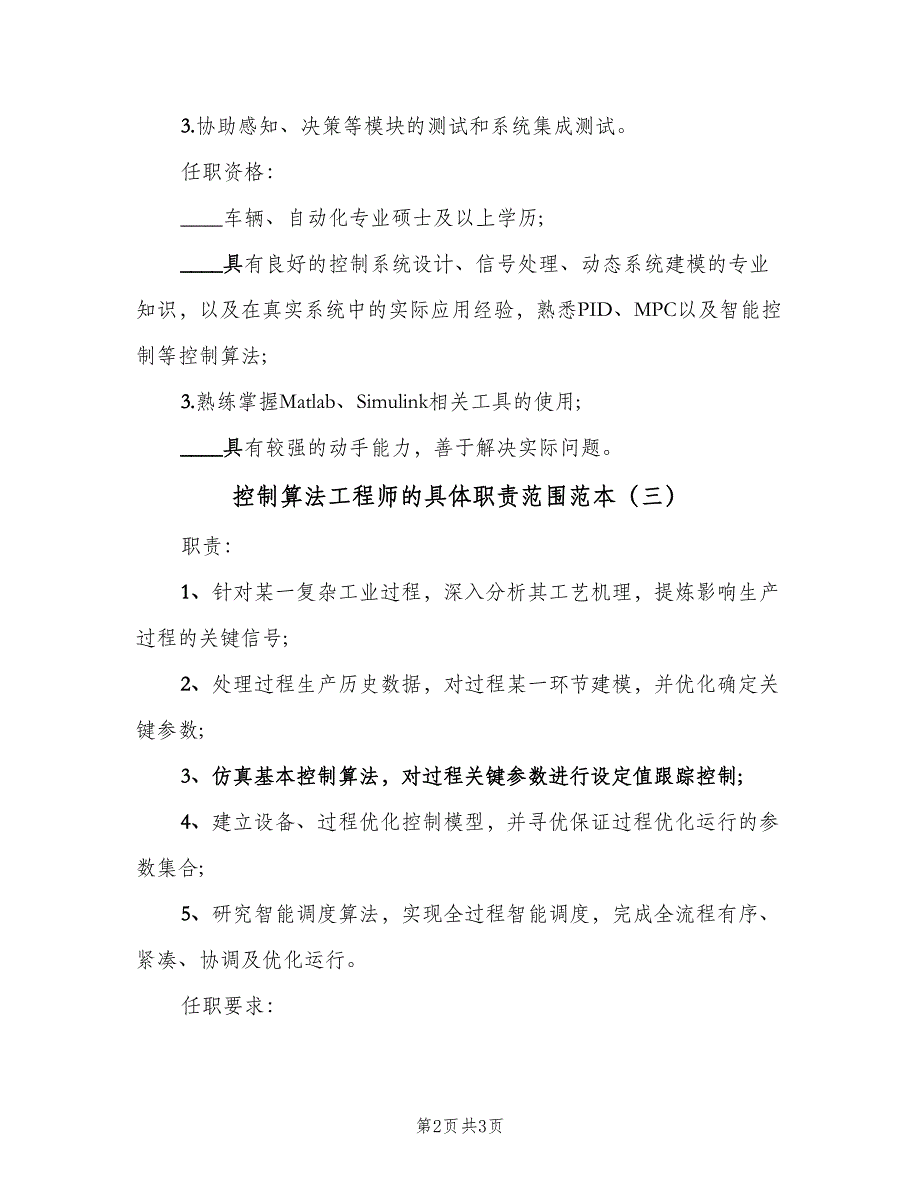 3.协助感知、决策等模块的测试和系统集成测试。
任职资格：
____车辆、自动化专业硕士及以上学历;
____具有良好的控制系统设计、信号处理、动态系统建模的专业
知识，以及在真实系统中的实际应用经验，熟悉PID、MPC以及智能控
制等控制算法;
3.熟练掌握Matlab、Simulink相关工具的使用;
____具有较强的动手能力，善于解决实际问题。
控制算法工程师的具体职责范围范本（三）
职责：
1、针对某一复杂工业过程，深入分析其工艺机理，提炼影响生产
过程的关键信号;
2、处理过程生产历史数据，对过程某一环节建模，并优化确定关
键参数;
3、仿真基本控制算法，对过程关键参数进行设定值跟踪控制;
4、建立设备、过程优化控制模型，并寻优保证过程优化运行的参
数集合;
5、研究智能调度算法，实现全过程智能调度，完成全流程有序、
紧凑、协调及优化运行。
任职要求：
第2页 共3页